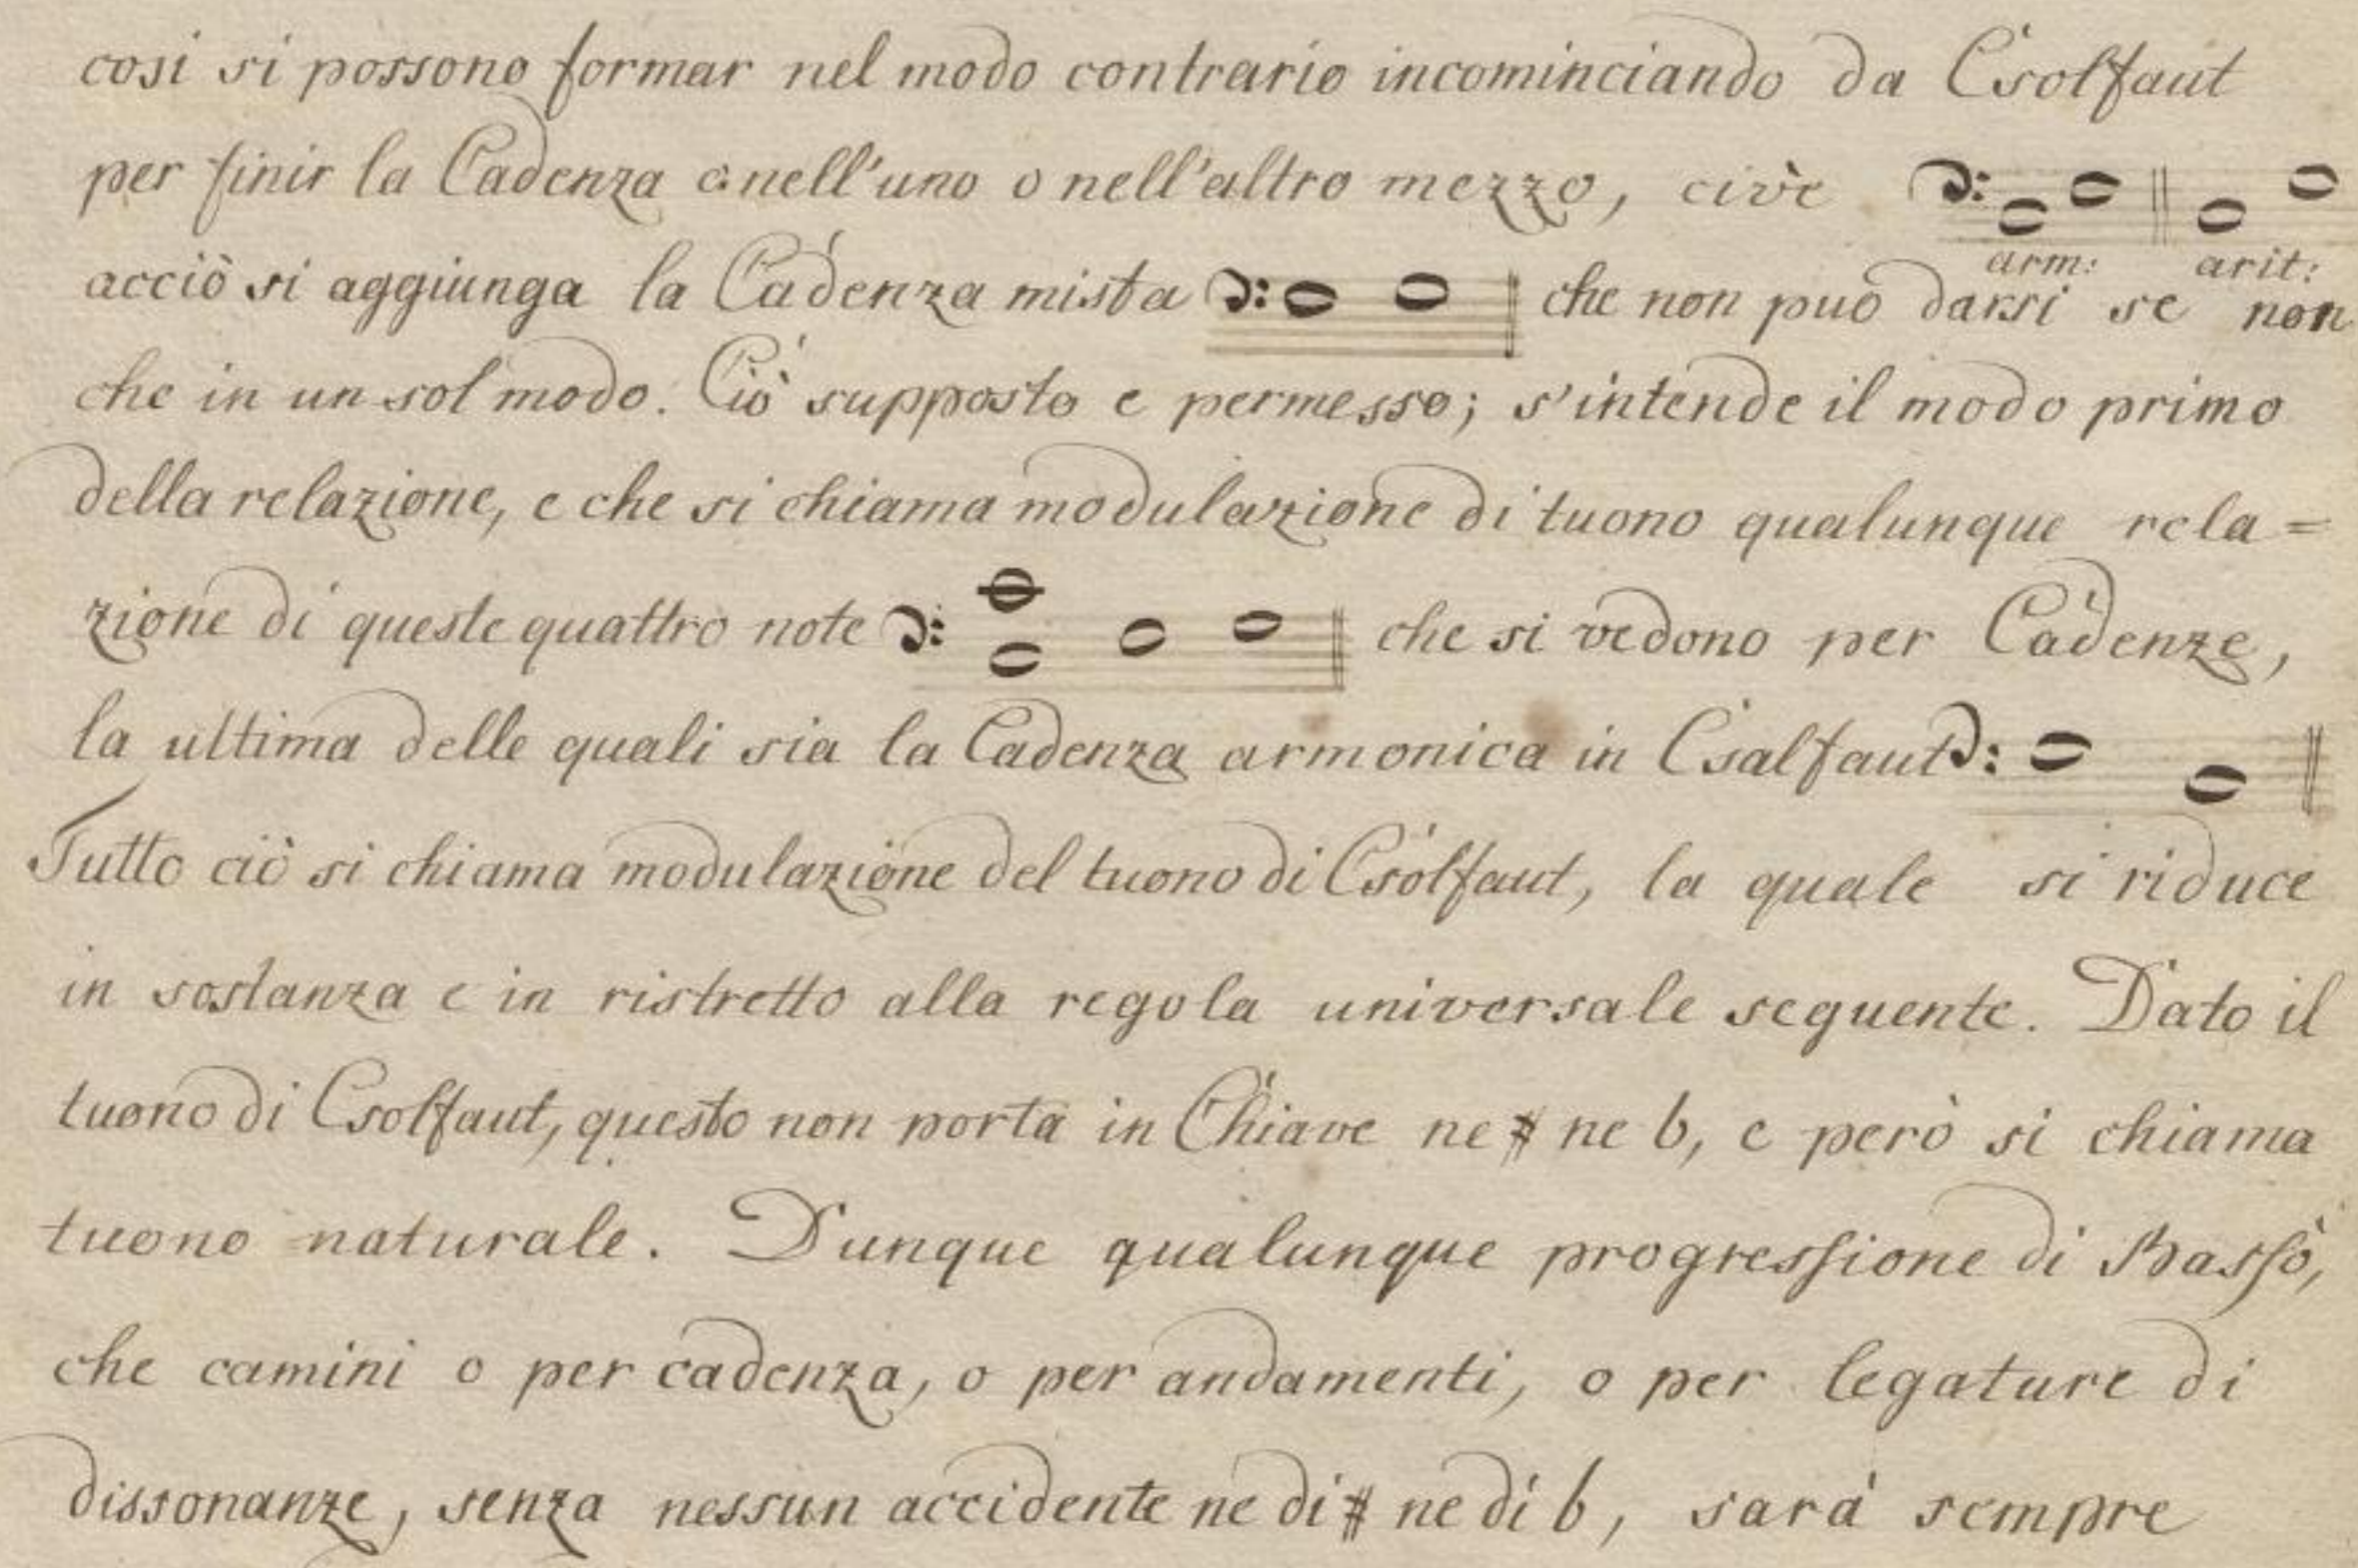 cosi si possono formar nel modo contrario incominciando da Csolfaut
per finir la Cadenza o nell'uno o nell'altro mezzo, civè
arm: arit:
acciò si aggiunga la Cadenza mista che non può darsi se non
che in un sol modo. Ciò supposto e permesso; s'intende il modo primo
della relazione, e che si chiama modulazione di tuono qualunque rela=
zione di queste quattro note che si vedono per Cadenze,
la ultima delle quali sia la Cadenza armonica in Csalfaut
Tutto ciò si chiama modulazione del tuono di Csolfaut, la quale si riduce
in sostanza e in ristretto alla regola universale seguente. Dato il
tuono di Csolfaut, questo non porta in Chiave ne # ne b, e però si chiama
tuono naturale. Dunque qualunque progressione di Basso,
che camini o per cadenza, o per andamenti, o per legature di
dissonanze, senza nessun accidente ne di # ne di b, sarà sempre